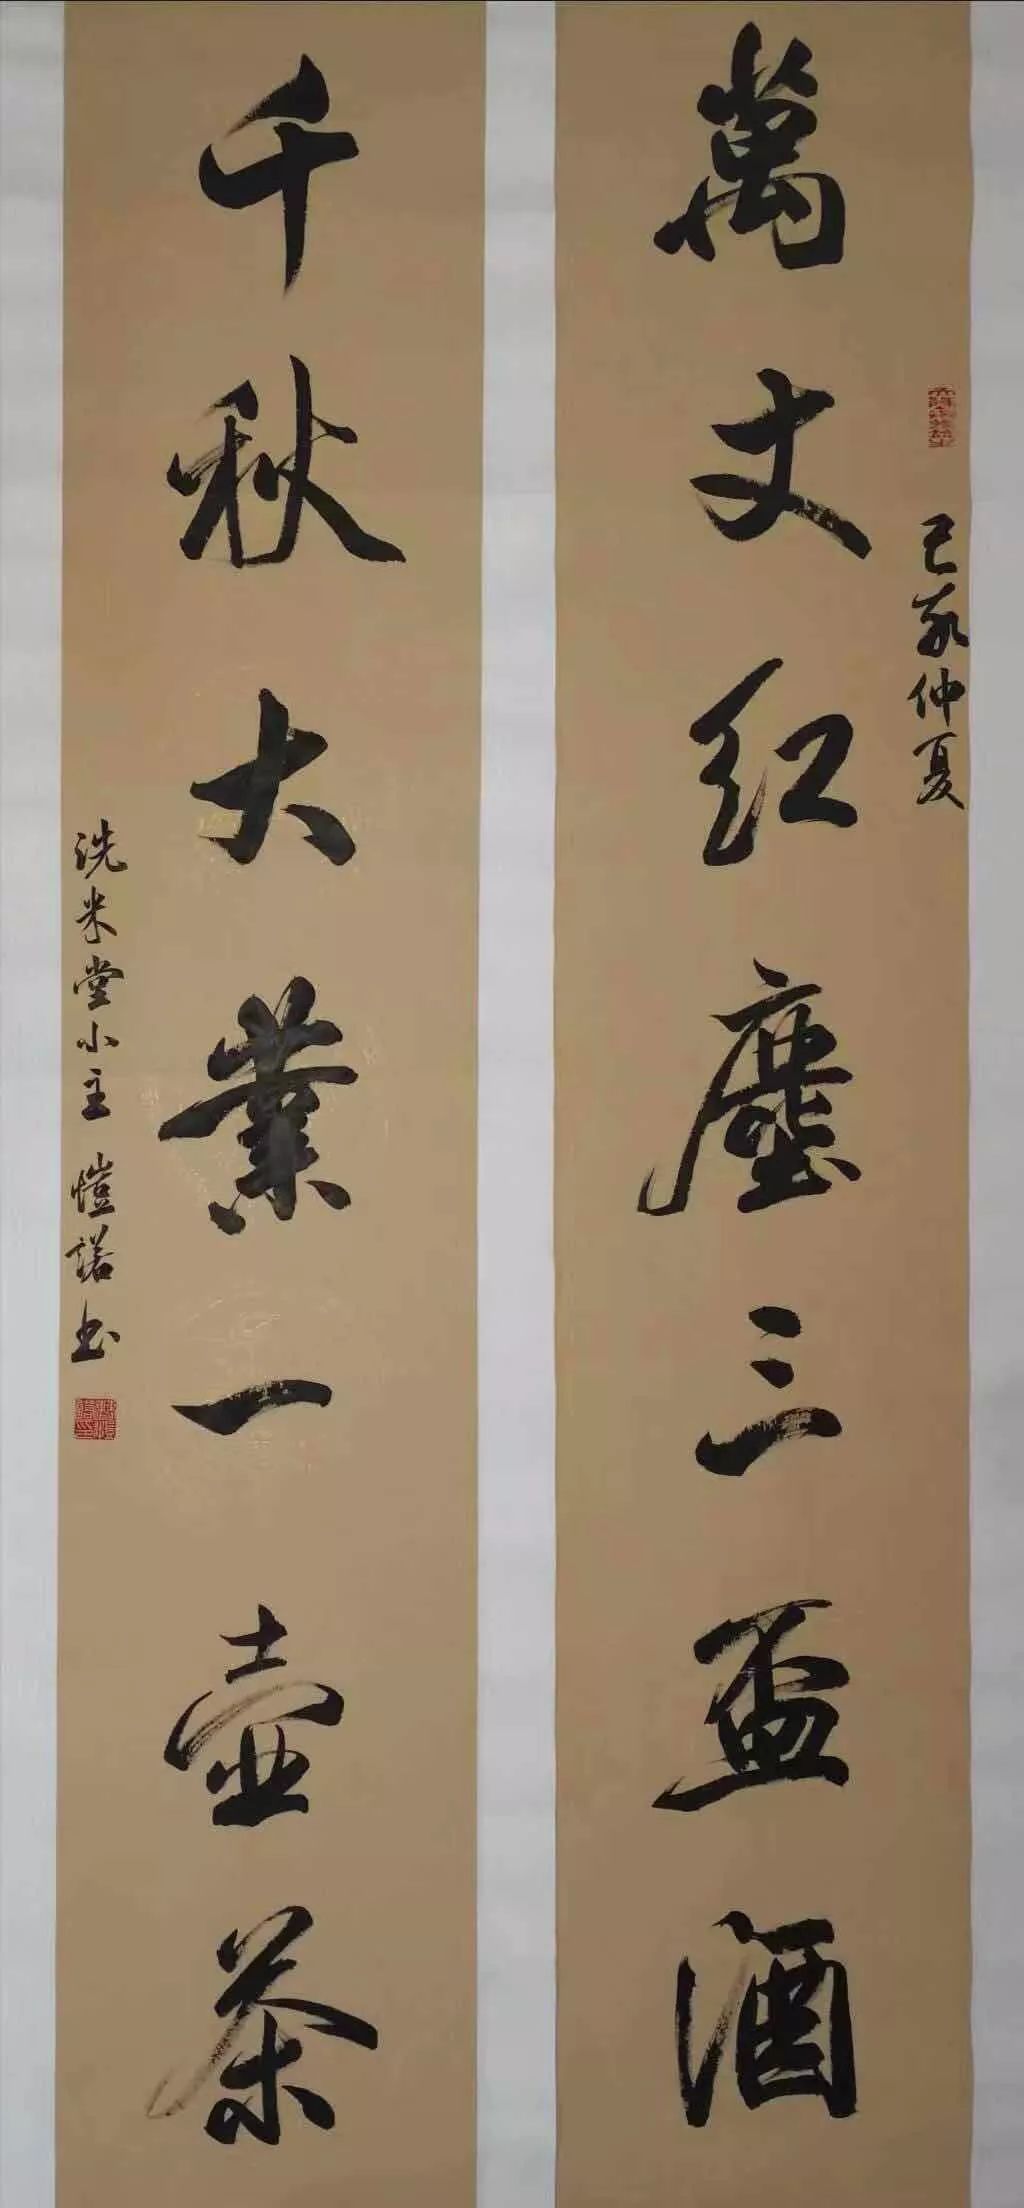 萬丈紅塵三盃酒
己亥仲夏
千秋大業一壺茶
洗米堂小主愷諾书